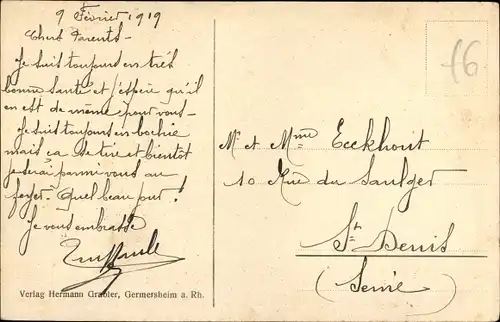 9 Février 1919
Chers Parents -
Je suis toujours en très
bonne santé et j'espère qu'il
en est de même pour vous -
Je suis toujours en bochie
mais ça se tire et bientôt
je serai parmi vous au
foyer. Quel beau jour !
Je vous embrasse
16
Mr et Mme Eeckhout
10 Rue du Saulger
St Denis
(Seine)
Verlag Hermann Grabler, Germersheim a. Rh.